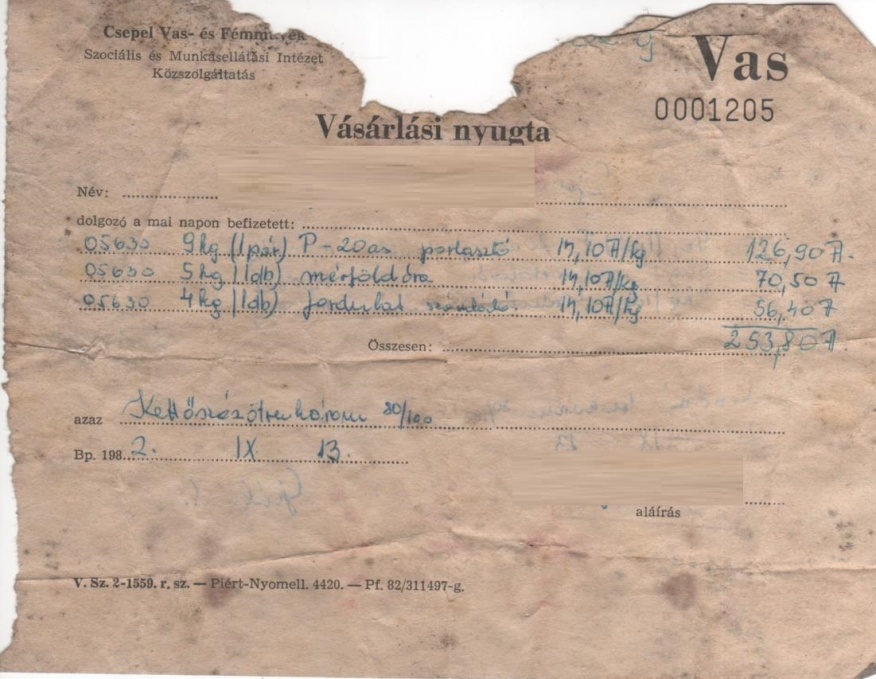 Csepel Vas- és Fémművek
Szociális és Munkásellátási Intézet
Közszolgáltatás
Vas
0001205
Vásárlási nyugta
Név:
dolgozó a mai napon befizetett:
05630 9 kg (1 pár) P-20as porlasztó 14,10 Ft/kg 126,90 Ft.
05630 5 kg (1 db) mérföldóra 14,10 Ft/kg 70,50 Ft
05630 4 kg (1 db) fordulat 14,10 Ft/kg 56,40 Ft
Összesen: 253,80 Ft
azaz Kettőszázötvenhárom 80/100
Bp. 1982. IX 13.
aláírás
V. Sz. 2-1559. r. sz. — Piért-Nyomell. 4420. — Pf. 82/311497-g.